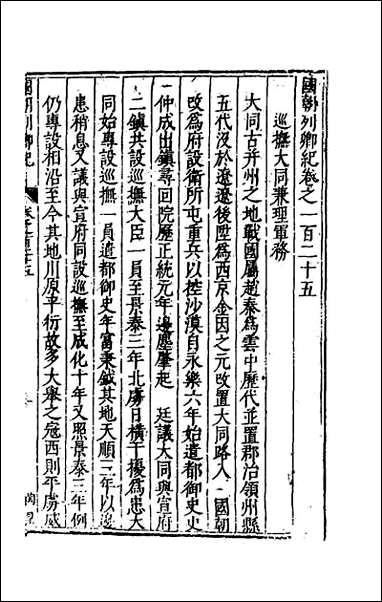 國朝列卿紀卷之一百二十五
巡撫大同兼理軍務
大同古并州之地戰國屬趙秦為雲中歷代並置郡治領州縣
五代沒於遼遼後陞為西京金因之元改置大同路入 國朝
改為府設衛所屯重兵以控沙漠自永樂六年始遣都御史史
仲成出鎮尋回院歷正統元年邊塵肇起 廷議大同與宣府
二鎮共設巡撫大臣一員至景泰三年北虜日橫干擾為患大
同始專設巡撫一員遣都御史年富秉鉞其地天順三年以邊
患稍息又議與宣府同設巡撫至成化十年又照景泰三年例
仍專設相沿至今其地川原平衍故多大舉之寇西則平虜威
國朝列卿紀
卷之一百二十五